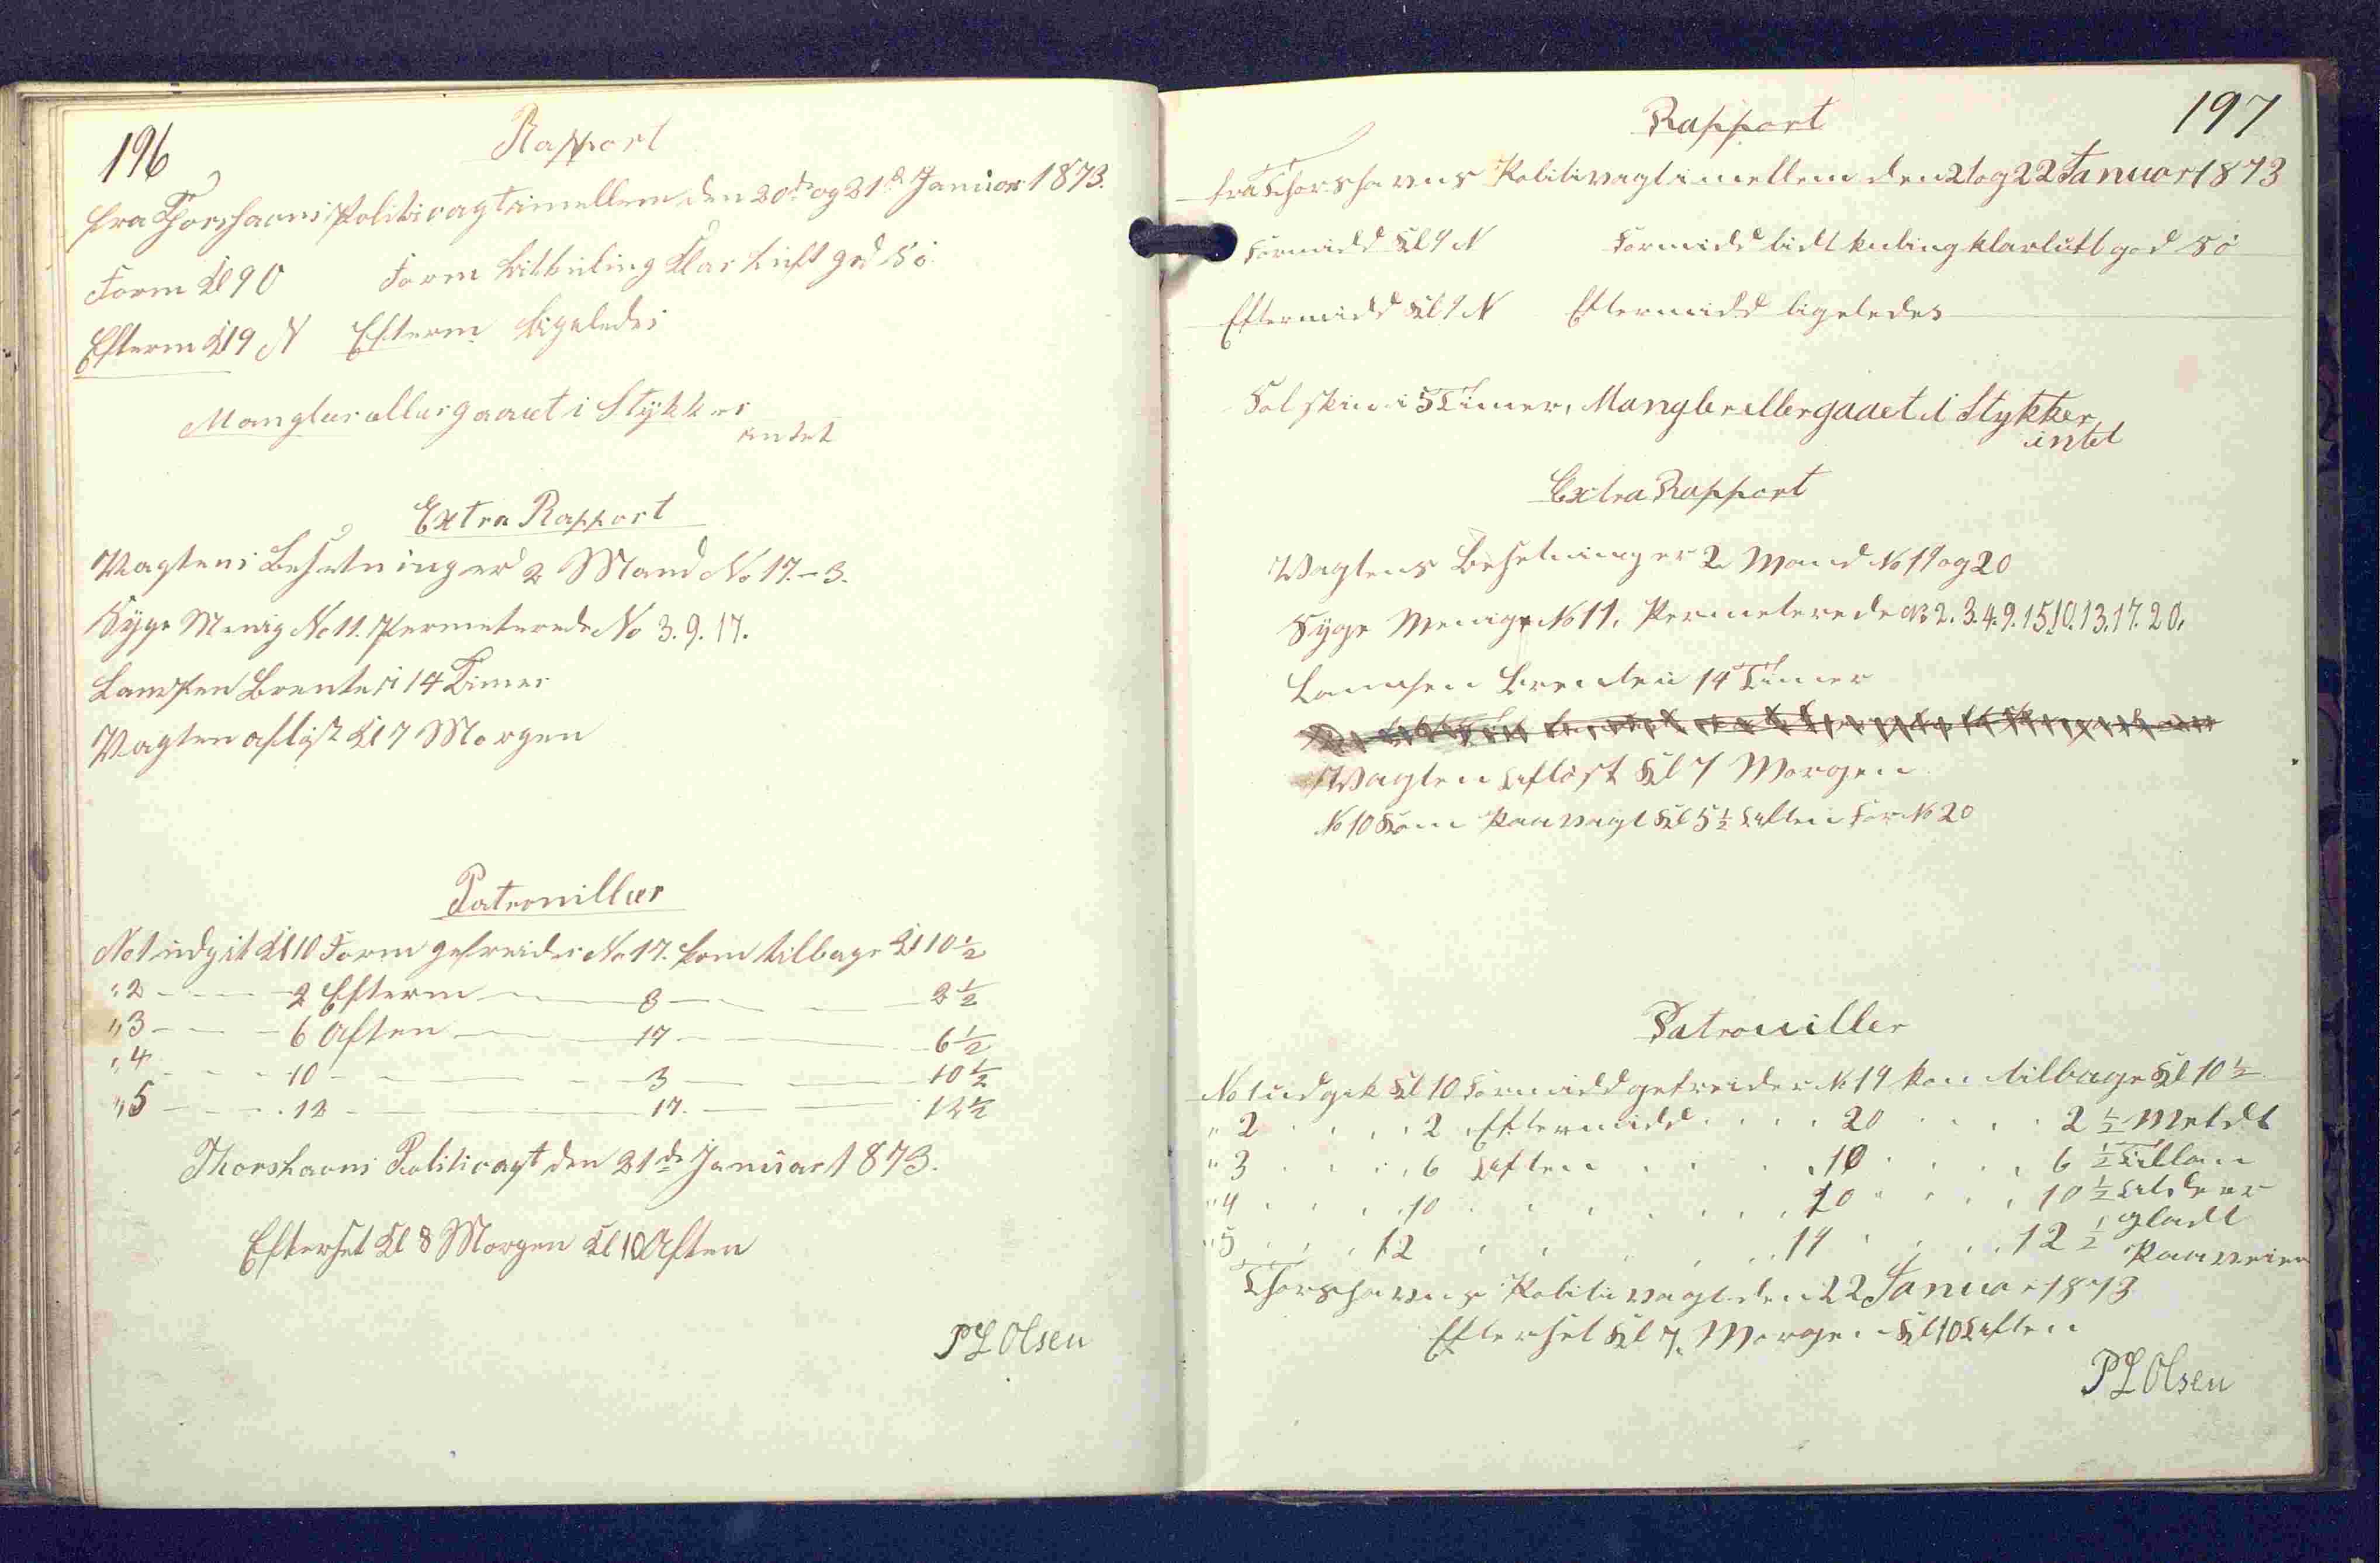 196
Rapport
fra Thorshavns Politivagt imellem den 20de og 21de Januar 1873.
Form Kl 9 O Form lit kuling Klar Luft god Sö
Efterm Kl 9 N Efterm ligeledes
Mangler eller gaaet i Stykker
intet
Extra Rapport
Vagtens Besetning er 2 Mand No 17.-3.
Syge Menig No 11. Permeterede No 3. 9. 17.
Lampen Brente i 14 Timer
Vagten aflöst Kl 7 Morgen
Patrouiller
No 1 udgik Kl 10 Form gefreider No 17. kom tilbage Kl 10 1/2
" 2 - - - - 2 Efterm - 3 - - 2 1/2
" 3 - - - 6 Aften - 17 - - 6 1/2
" 4 - - - 10 - - - 3 - - 10 1/2
" 5 - - - 12 - - 17. - - 12 1/2
Thorshavns Politivagt den 21de Januar 1873.
Efterset Kl 8 Morgen Kl 10 Aften
P L Olsen
197
Rapport
fra Thorshavns Politivagt imellem den 21 og 22 Januar 1873
Formidd Kl 9 N Formidd lidt kuling klar luft god Sö
Eftermidd Kl 9 N Eftermidd ligeledes
Solskin i 5 Timer, Mangler eller gaaet i Stykker
intet
Extra Rapport
Vagtens Besetning er 2 Mand No 19 og 20
Syge Menige No 11. Permeterede No 2. 3. 4. 9. 15. 10. 13. 17. 20.
Lampen Brente i 14 Timer
Vagten Aflöst Kl 7 Morgen
No 10 Kom Paa vagt Kl 5 1/2 Aften For No 20
Patrouiller
No 1 udgik Kl 10 Formidd gefreider No 19 kom tilbage Kl 10 1/2
" 2 . . . . 2 Eftermidd . . . . 20 . . . . 2 1/2 Meldt
" 3 . . . . 6 Aften . . . . 10 . . . . 6 1/2
" 4 . . . . 10 . . . . 20 . . . . 10 1/2 at der er
" 5 . . . . 12 . . . . 19 . . . . 12 1/2 gladt
Paa veien
Thorshavns Politivagt den 22 Januar 1873
Efterset Kl 7. Morgen Kl 10 Aften
P L Olsen